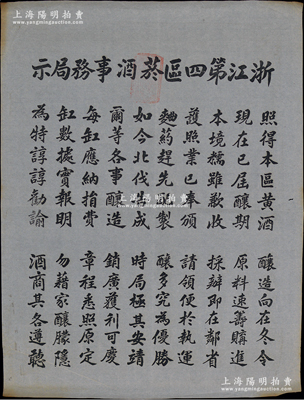 上海阳明拍卖
Shanghai Yangming Auction
浙江第四區菸酒事務局示
照得本區黃酒 釀造向在冬令
現在已屆釀期 原料速籌購進
本境糯雖歉收 採辦即在鄰省
護照業已奉頒 請領便於執運
麯葯趕先製 釀多究為優勝
如今北伐完成 時局極其安靖
爾等各事釀造 銷廣獲利可慶
每缸應納捐費 章程悉照原定
缸數據實報明 勿藉家釀朦隱
為特諄諄勸諭 酒商其各遵聽
上海阳明拍卖
Shanghai Yangming Auction